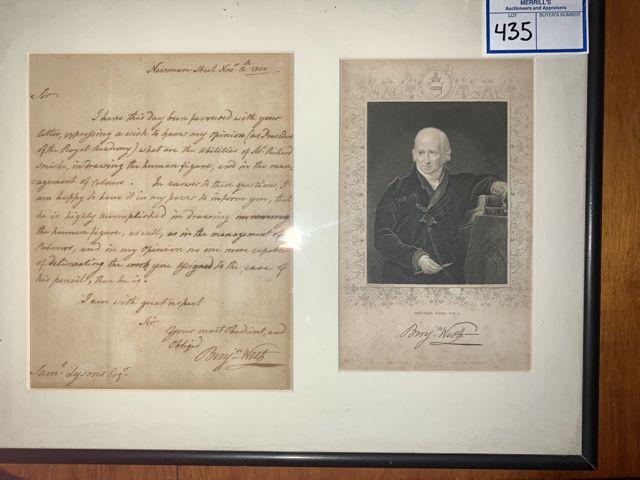 MERRILL'S
Auctioneers and Appraisers
LOT
BUYER'S NUMBER
435
Newman Street Novr. 12th. 1800
Sir
I have this day been favoured with your
letter, expressing a wish to know my opinion (as President
of the Royal Academy) what are the abilities of Mr. Richard
Smirke, in drawing the human figure, and in the man-
agement of colours. In answer to these questions, I
am happy to have it in my power to inform you, that
he is highly accomplished in drawing
the human figure, as well, as in the management of
Colours, and in my opinion no one more capable
of delineating the work you assigned to the care of
his pencil, then he is.
I am with great respect
Sir
Your most Obedient, and
Obliged
Benjn. West
Saml. Lysons Esqr.
BENJAMIN WEST, P.R.A.
Benjn. West